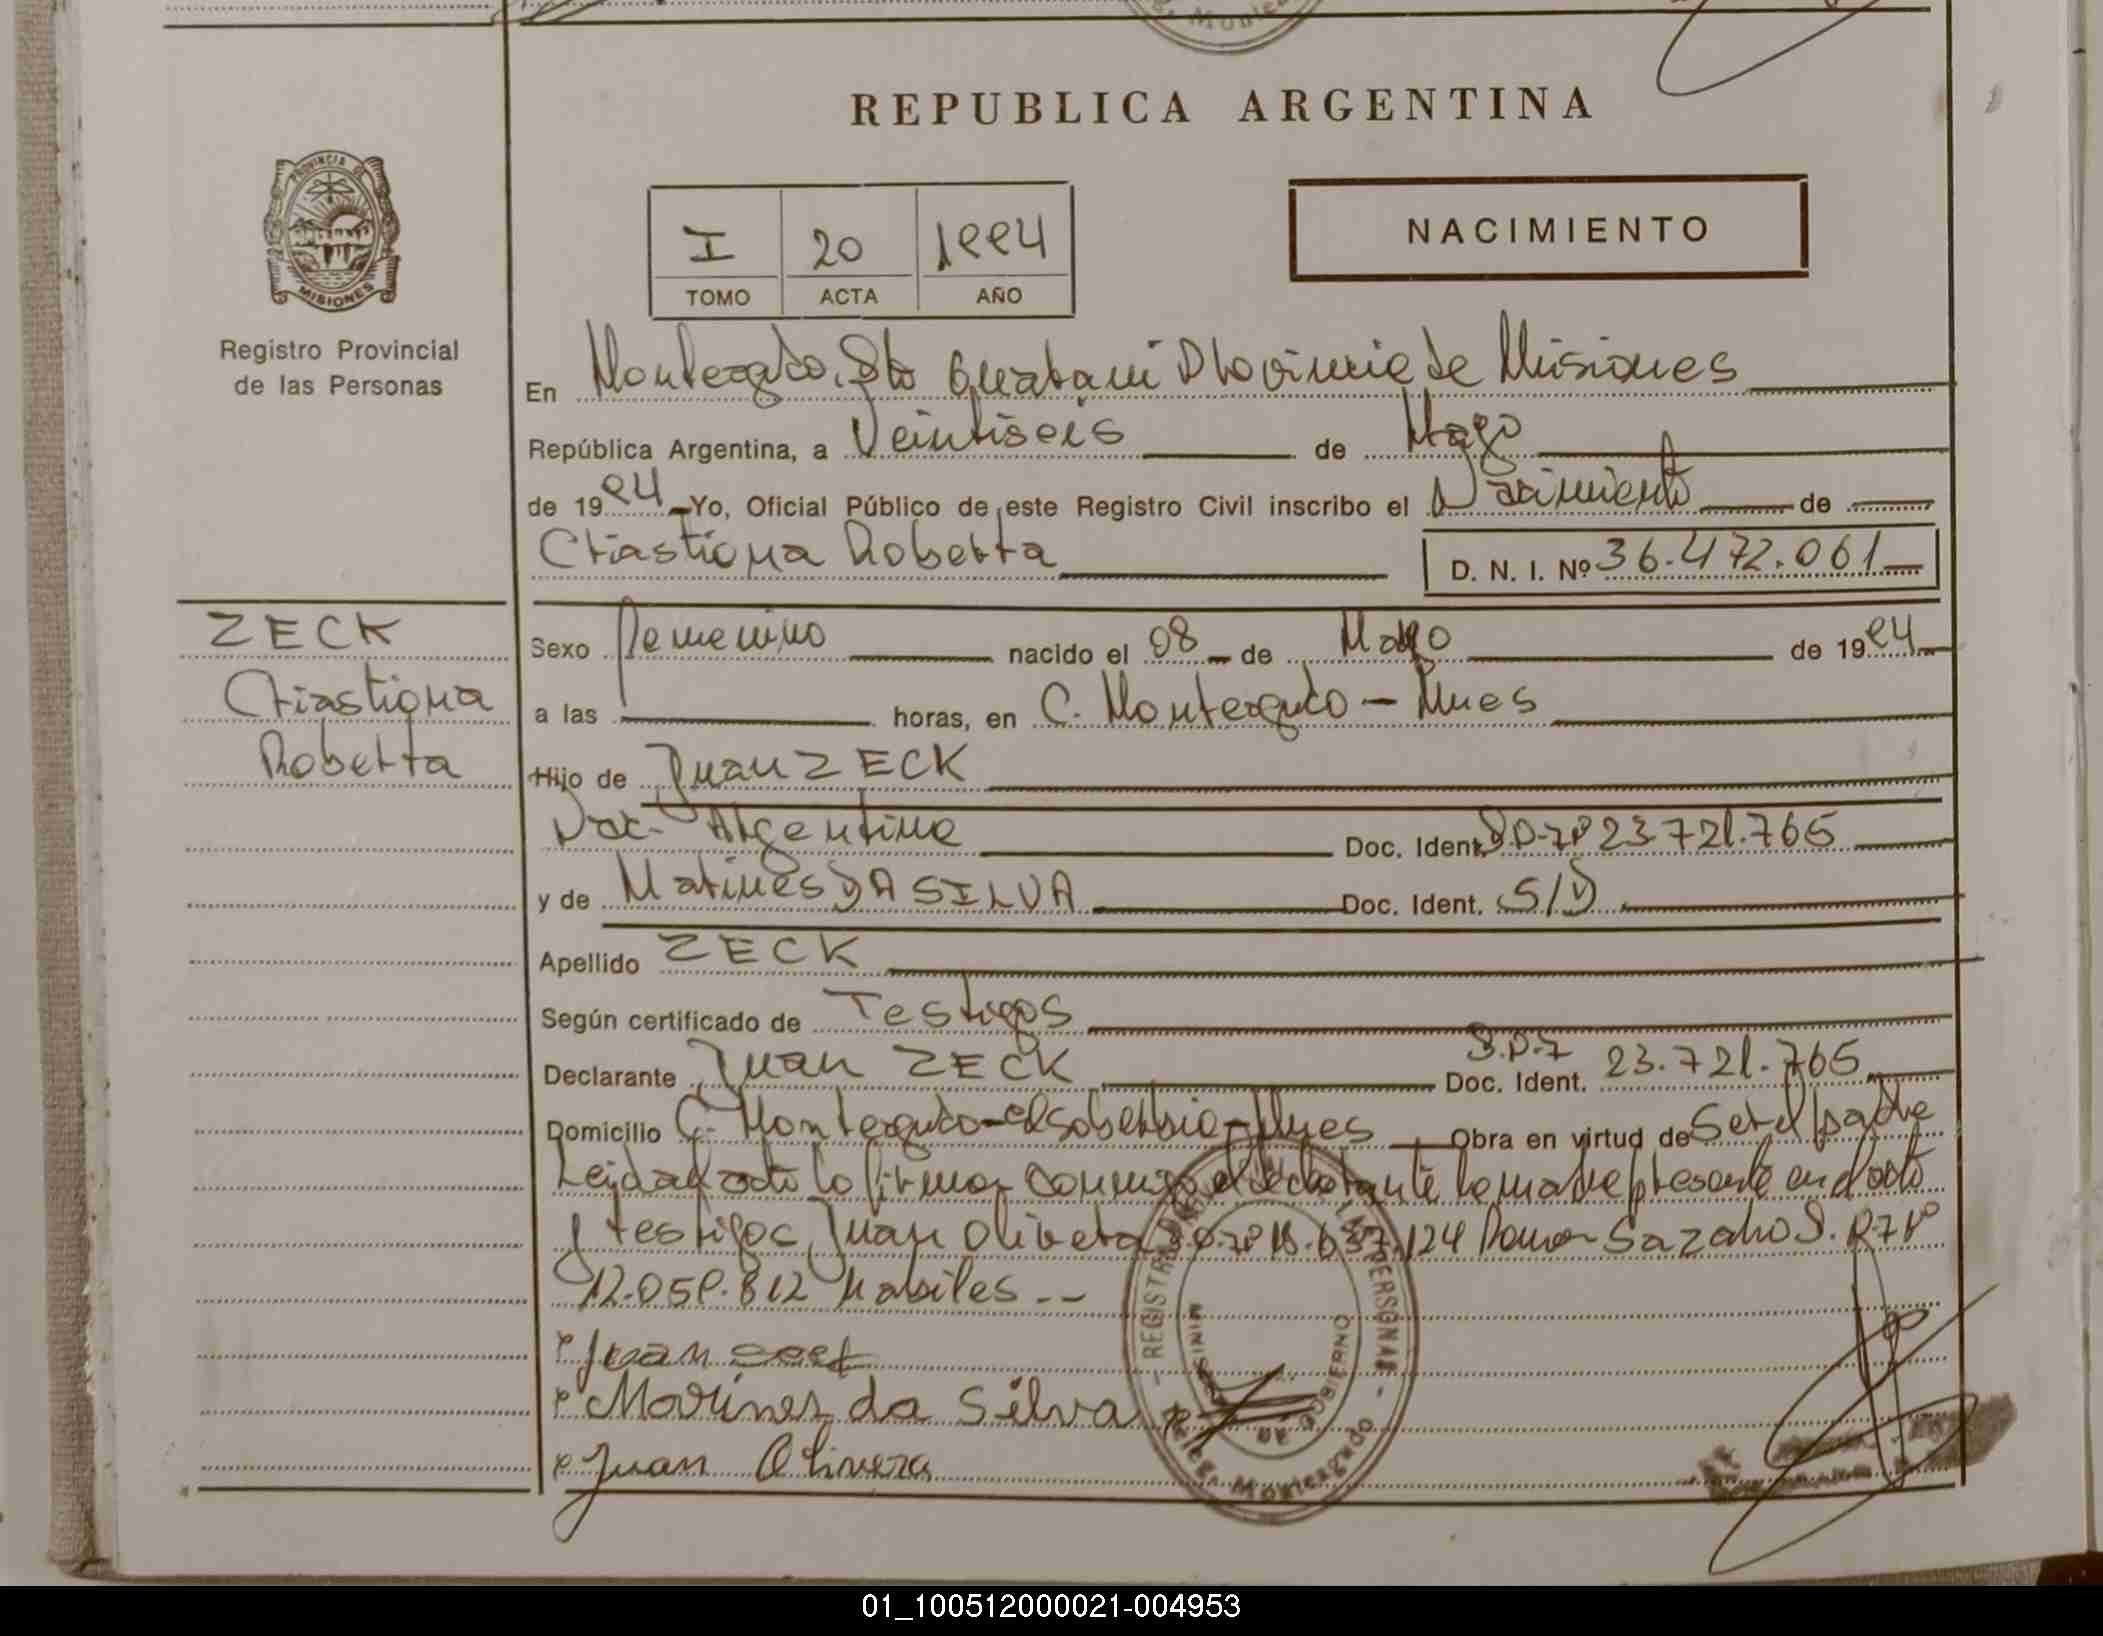 REPUBLICA ARGENTINA
PROVINCIA DE
MISIONES
Registro Provincial
de las Personas
I 20 1994
TOMO ACTA AÑO
NACIMIENTO
En Monteagudo, Dto Guarani Provincia de Misiones
República Argentina, a Veintiseis de Mayo
de 1994 Yo, Oficial Público de este Registro Civil inscribo el Nacimiento de
Cristiana Roberta
D. N. I. Nº 36.472.061
ZECK
Cristiana
Roberta
Sexo Femenino nacido el 08 de Mayo de 1994
a las horas, en C. Monteagudo - Mnes
Hijo de Juan ZECK
Nac. Argentina Doc. Ident. D.N.I Nº 23.721.765
y de Marines DA SILVA Doc. Ident. S/D
Apellido ZECK
Según certificado de Testigos
Declarante Juan ZECK Doc. Ident. D.N.I 23.721.765
Domicilio C. Monteagudo - El Soberbio - Mnes Obra en virtud de Ser el padre
Leida el acta la firman conmigo el declarante la madre presente en el acto
y testigos Juan Olivera D.N.I Nº 18.637.124 Ramon D.N.I Nº
12.059.812 habiles --
Juan
Marines da Silva
Juan Olivera
REGISTRO LAS PERSONAS
DE GOBIERNO
Deleg. Monteagudo
01_100512000021-004953